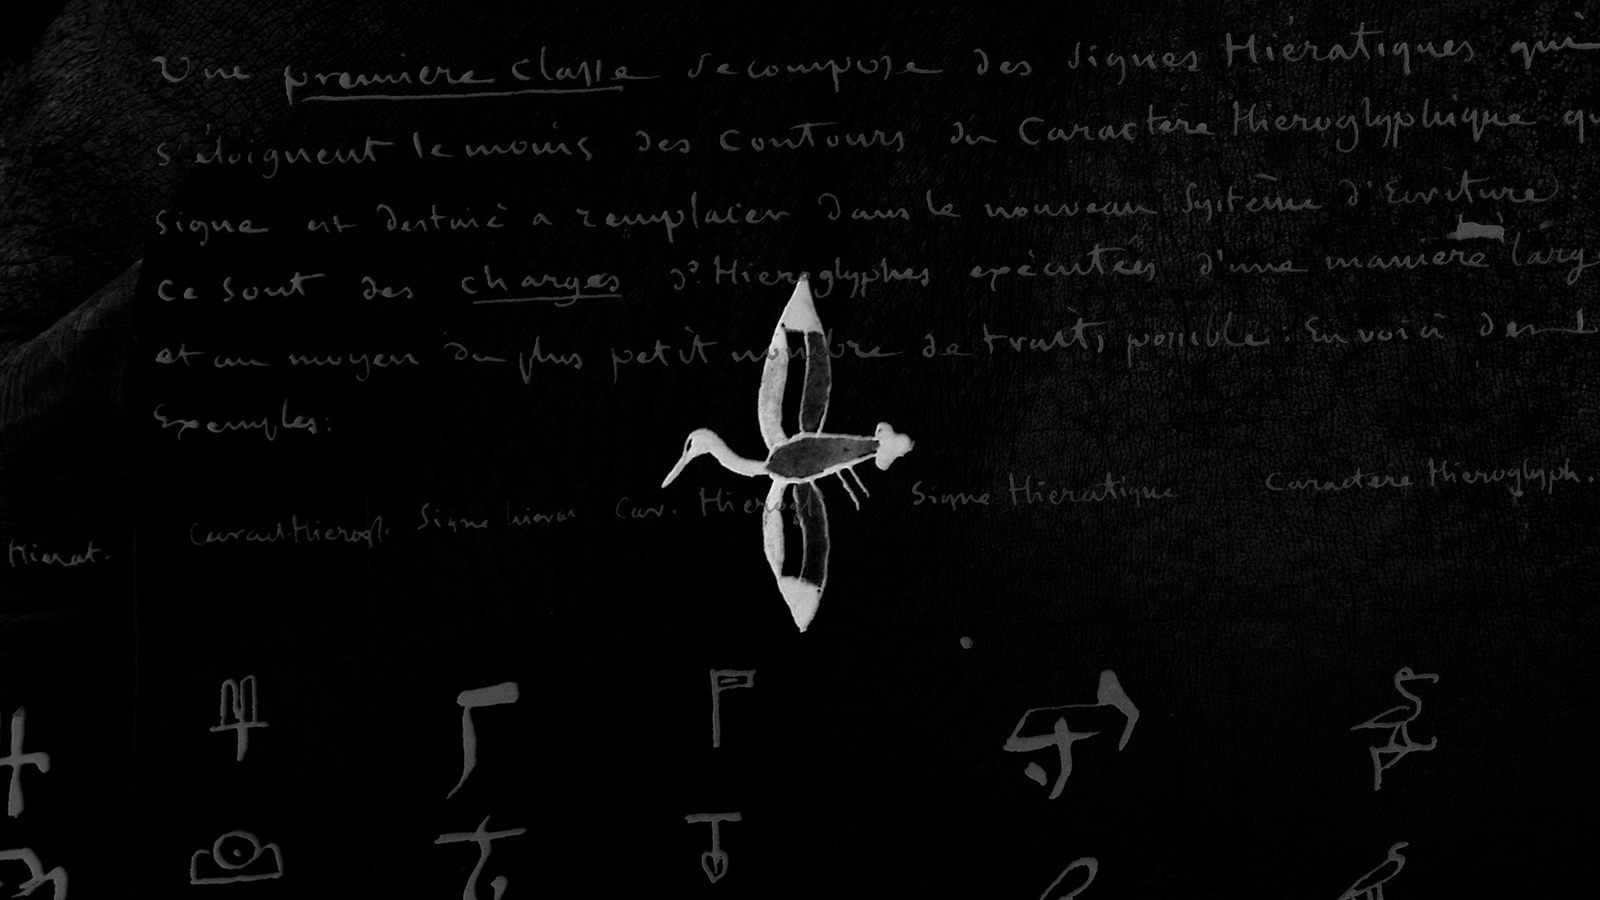 Une premiere classe se compose des signes Hiératiques qui
s'éloignent le moins des contours du Caractère Hieroglyphique qu
signe est destiné a remplacer dans le nouveau Système d'Ecriture.
ce sont des charges d'Hieroglyphes exécutées d'une maniere larg
et au moyen du plus petit nombre de traits possible: En voici des
Exemples:
Hierat. Caract. Hierogl. Signe hierat Car. Hierogl Signe Hieratique Caractère Hieroglyph.